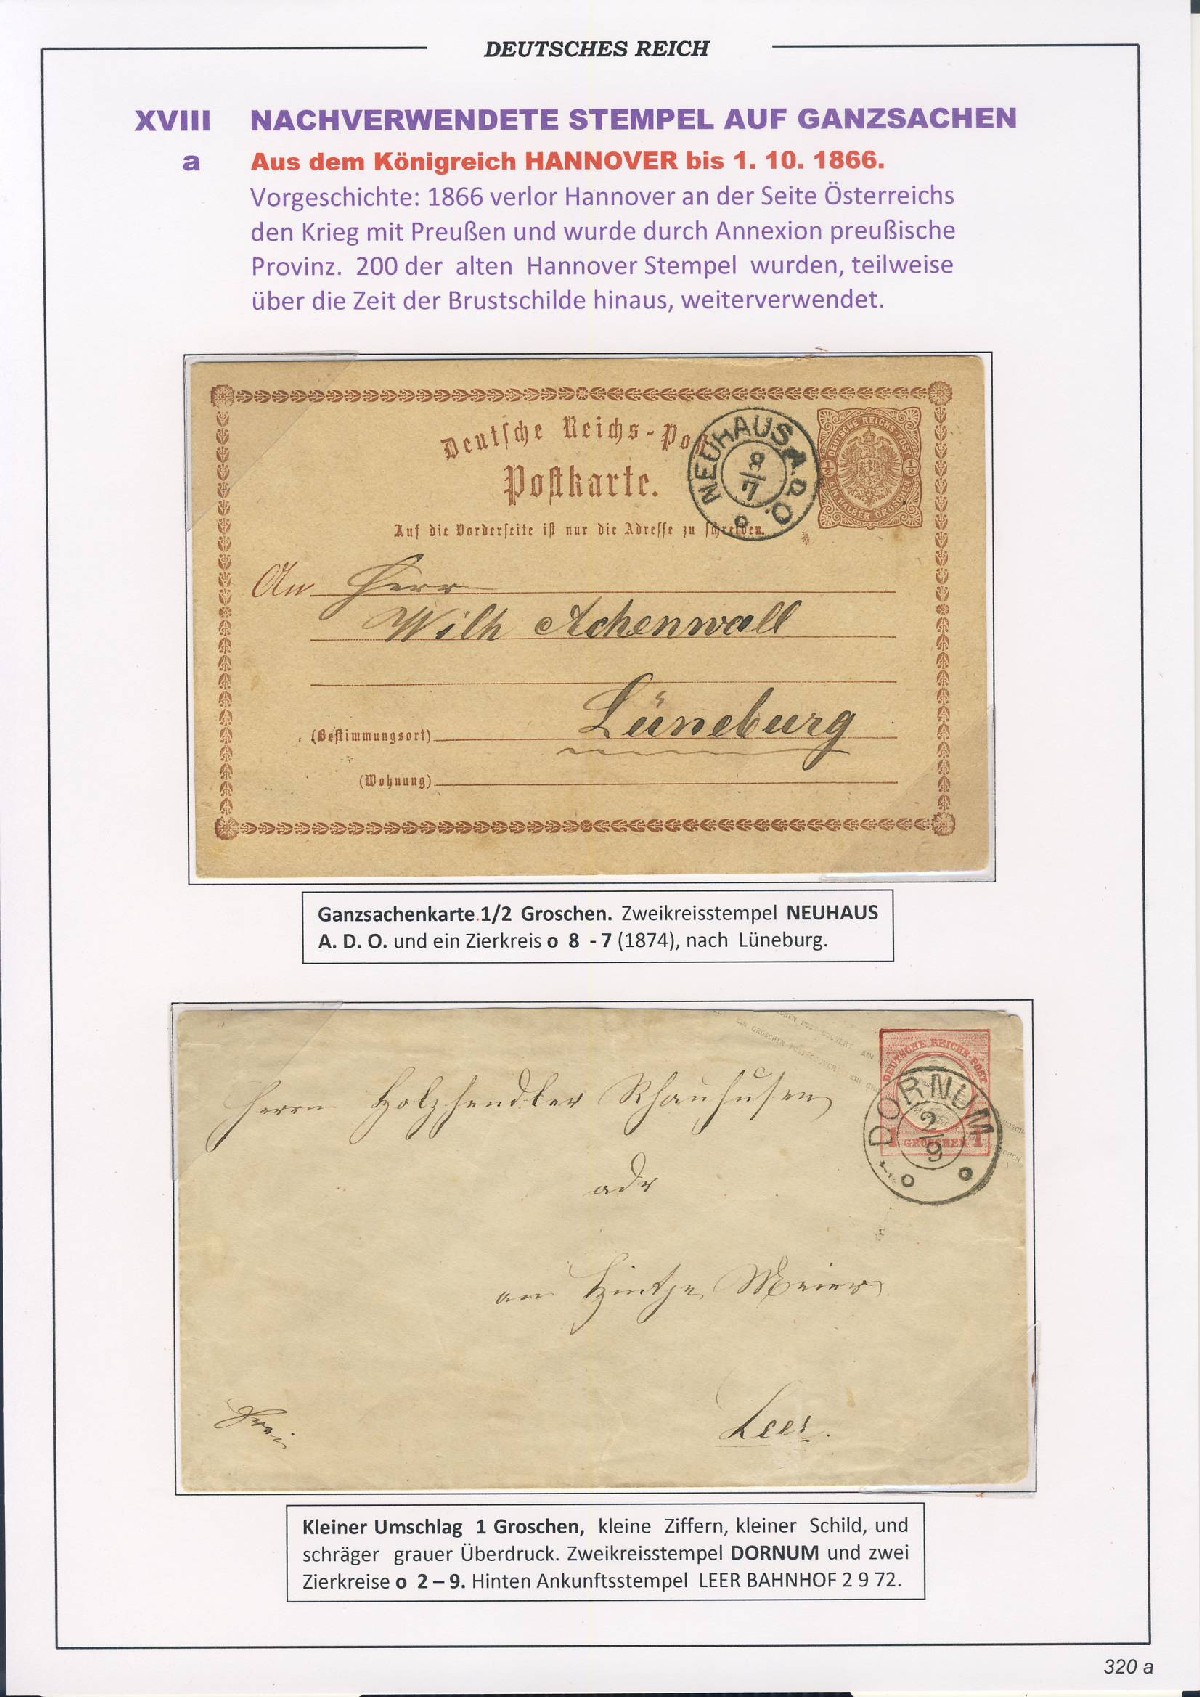 DEUTSCHES REICH
XVIII NACHVERWENDETE STEMPEL AUF GANZSACHEN
a Aus dem Königreich HANNOVER bis 1. 10. 1866.
Vorgeschichte: 1866 verlor Hannover an der Seite Österreichs
den Krieg mit Preußen und wurde durch Annexion preußische
Provinz. 200 der alten Hannover Stempel wurden, teilweise
über die Zeit der Brustschilde hinaus, weiterverwendet.
Deutsche Reichs-Post
Postkarte.
NEUHAUS A. D. O.
8
7
Auf die Vorderseite ist nur die Adresse zu schreiben.
An Herr
Wilh Achenwall
Lüneburg
(Bestimmungsort)
(Wohnung)
Ganzsachenkarte 1/2 Groschen. Zweikreisstempel NEUHAUS
A. D. O. und ein Zierkreis o 8 - 7 (1874), nach Lüneburg.
DEUTSCHE REICHS-POST
1 GROSCHEN 1
DORNUM
2
9
Herrn Holzhendler
adr
Meier
Leer.
Kleiner Umschlag 1 Groschen, kleine Ziffern, kleiner Schild, und
schräger grauer Überdruck. Zweikreisstempel DORNUM und zwei
Zierkreise o 2 – 9. Hinten Ankunftsstempel LEER BAHNHOF 2 9 72.
320 a